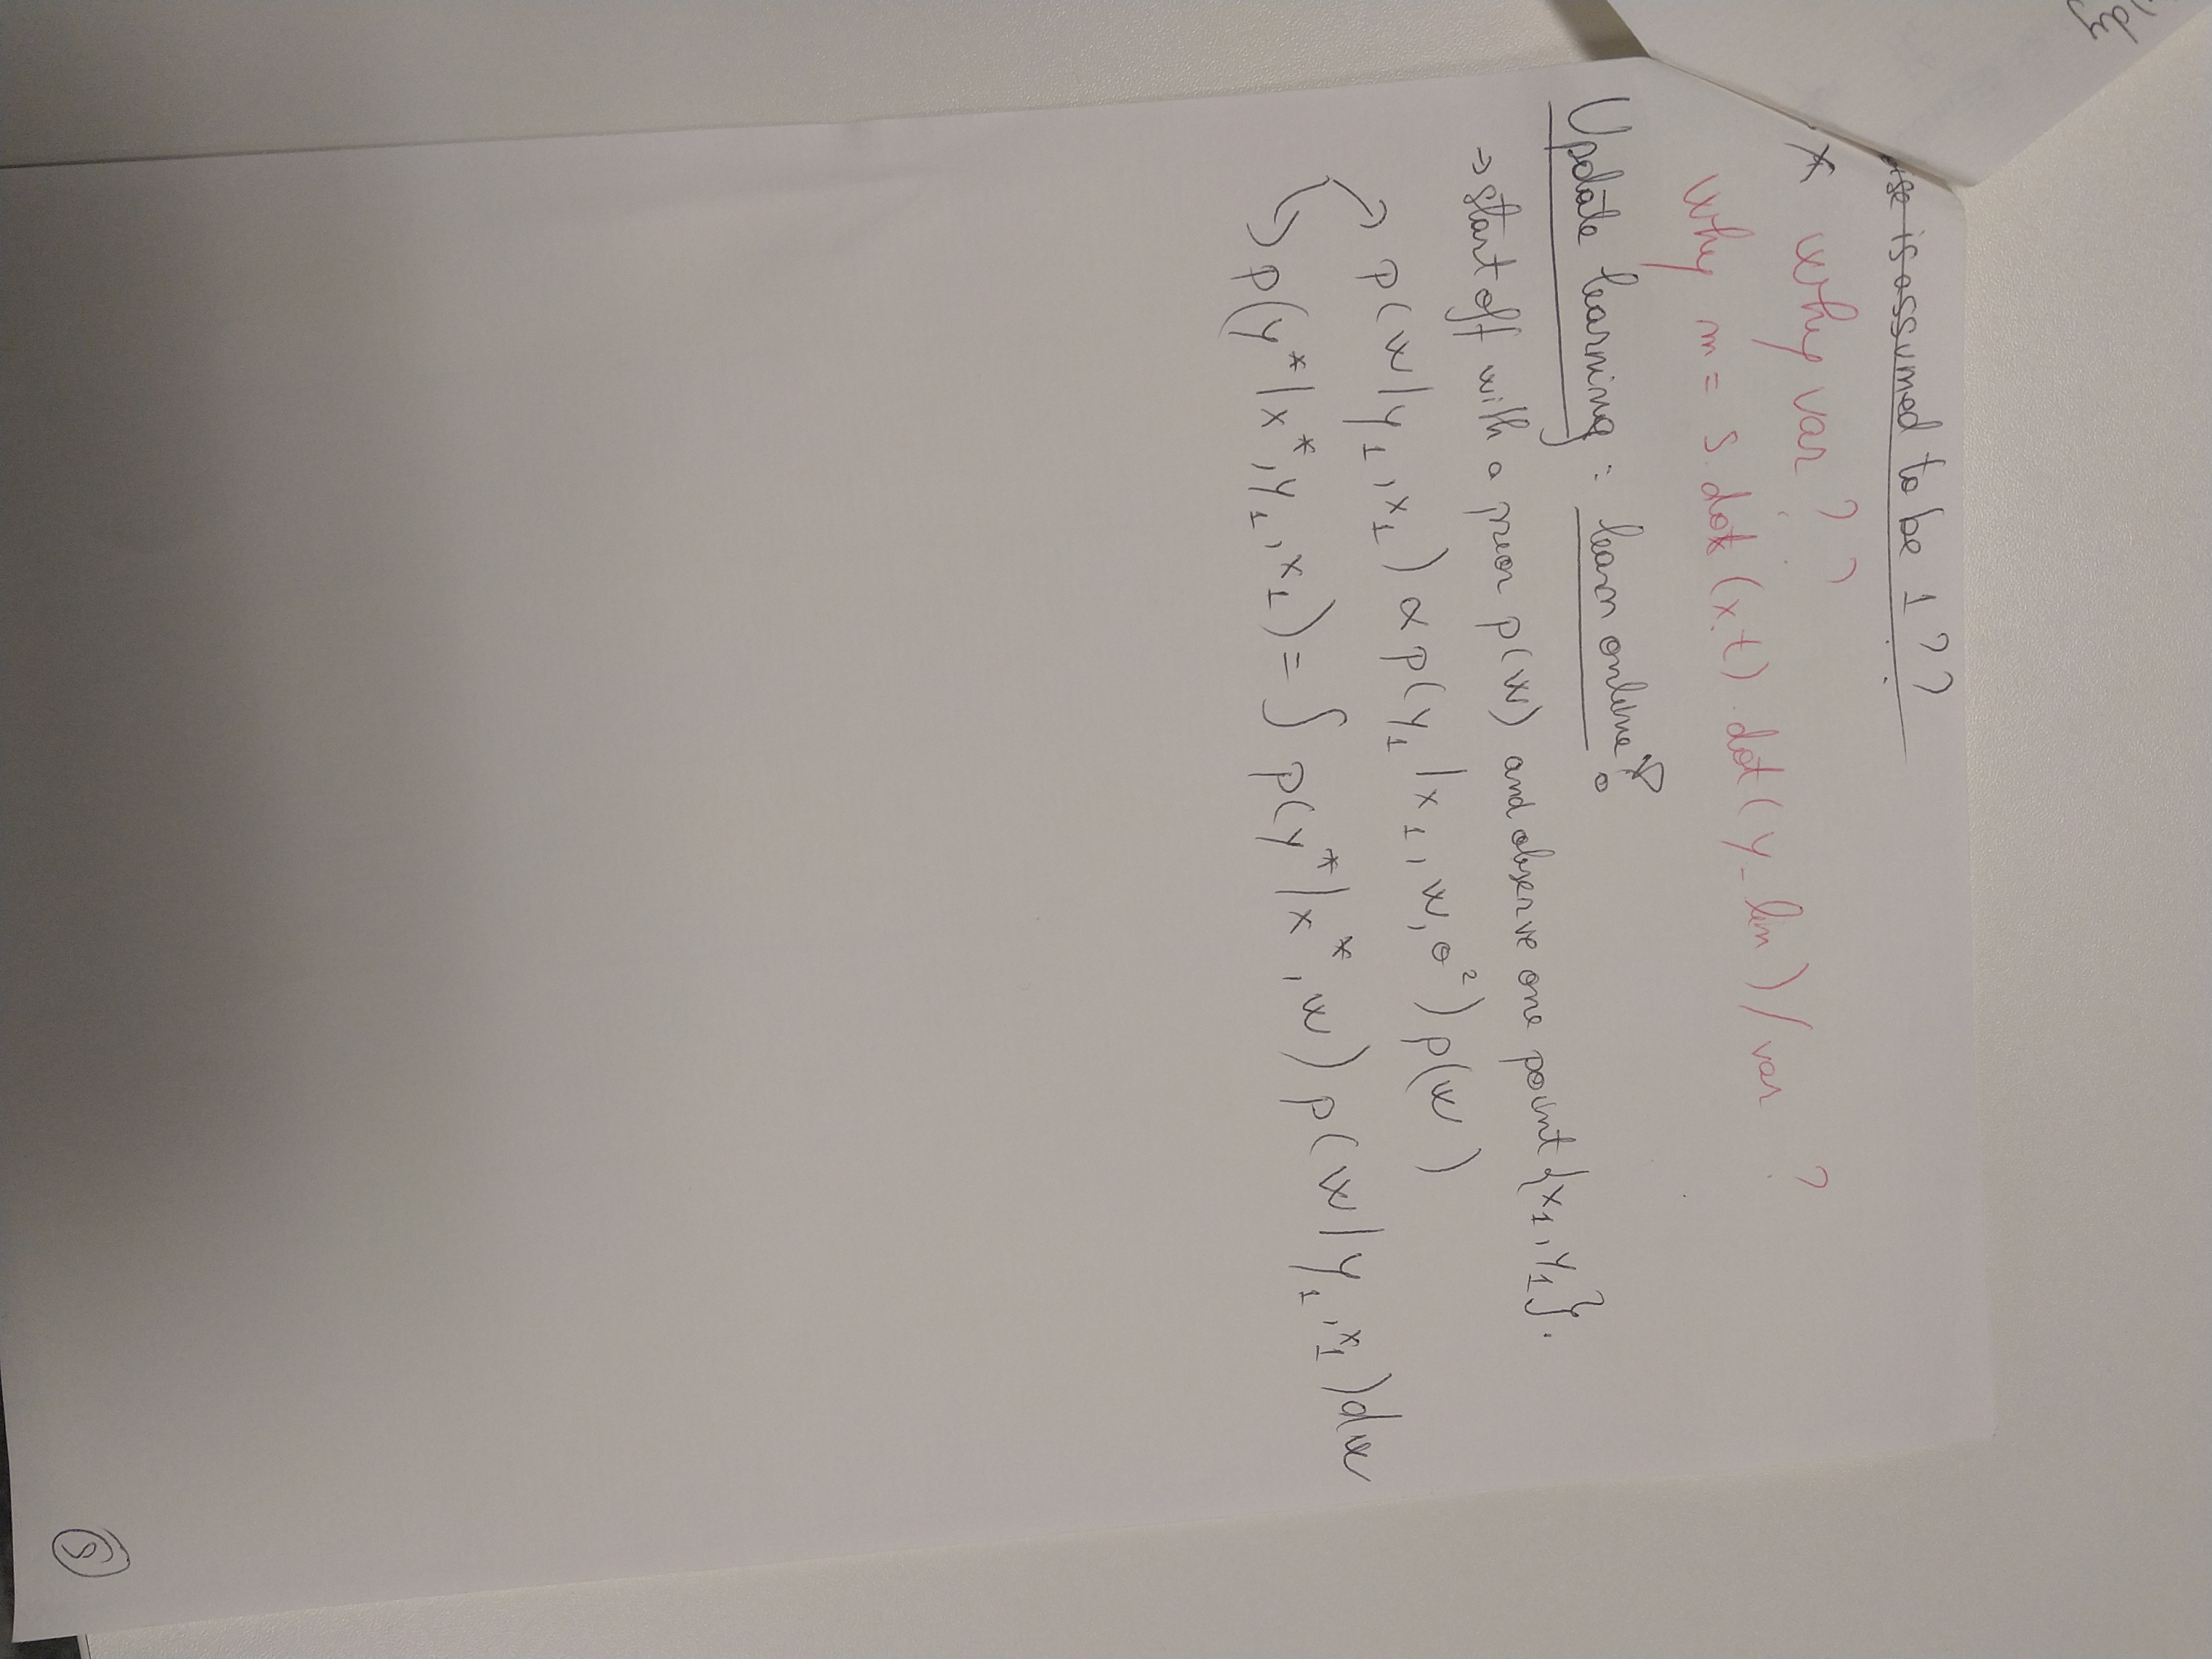 )dy
ise is assumed to be 1 ??
* why var ??
why m = S.dot (x.t).dot(y_lin)/var ?
Update learning : learn online!
→ start off with a prior p(w) and observe one point {x₁, y₁}.
p(w|y₁, x₁) ∝ p(y₁|x₁, w, σ²) p(w)
p(y*|x*, y₁, x₁) = ∫ p(y*|x*, w) p(w|y₁, x₁) dw